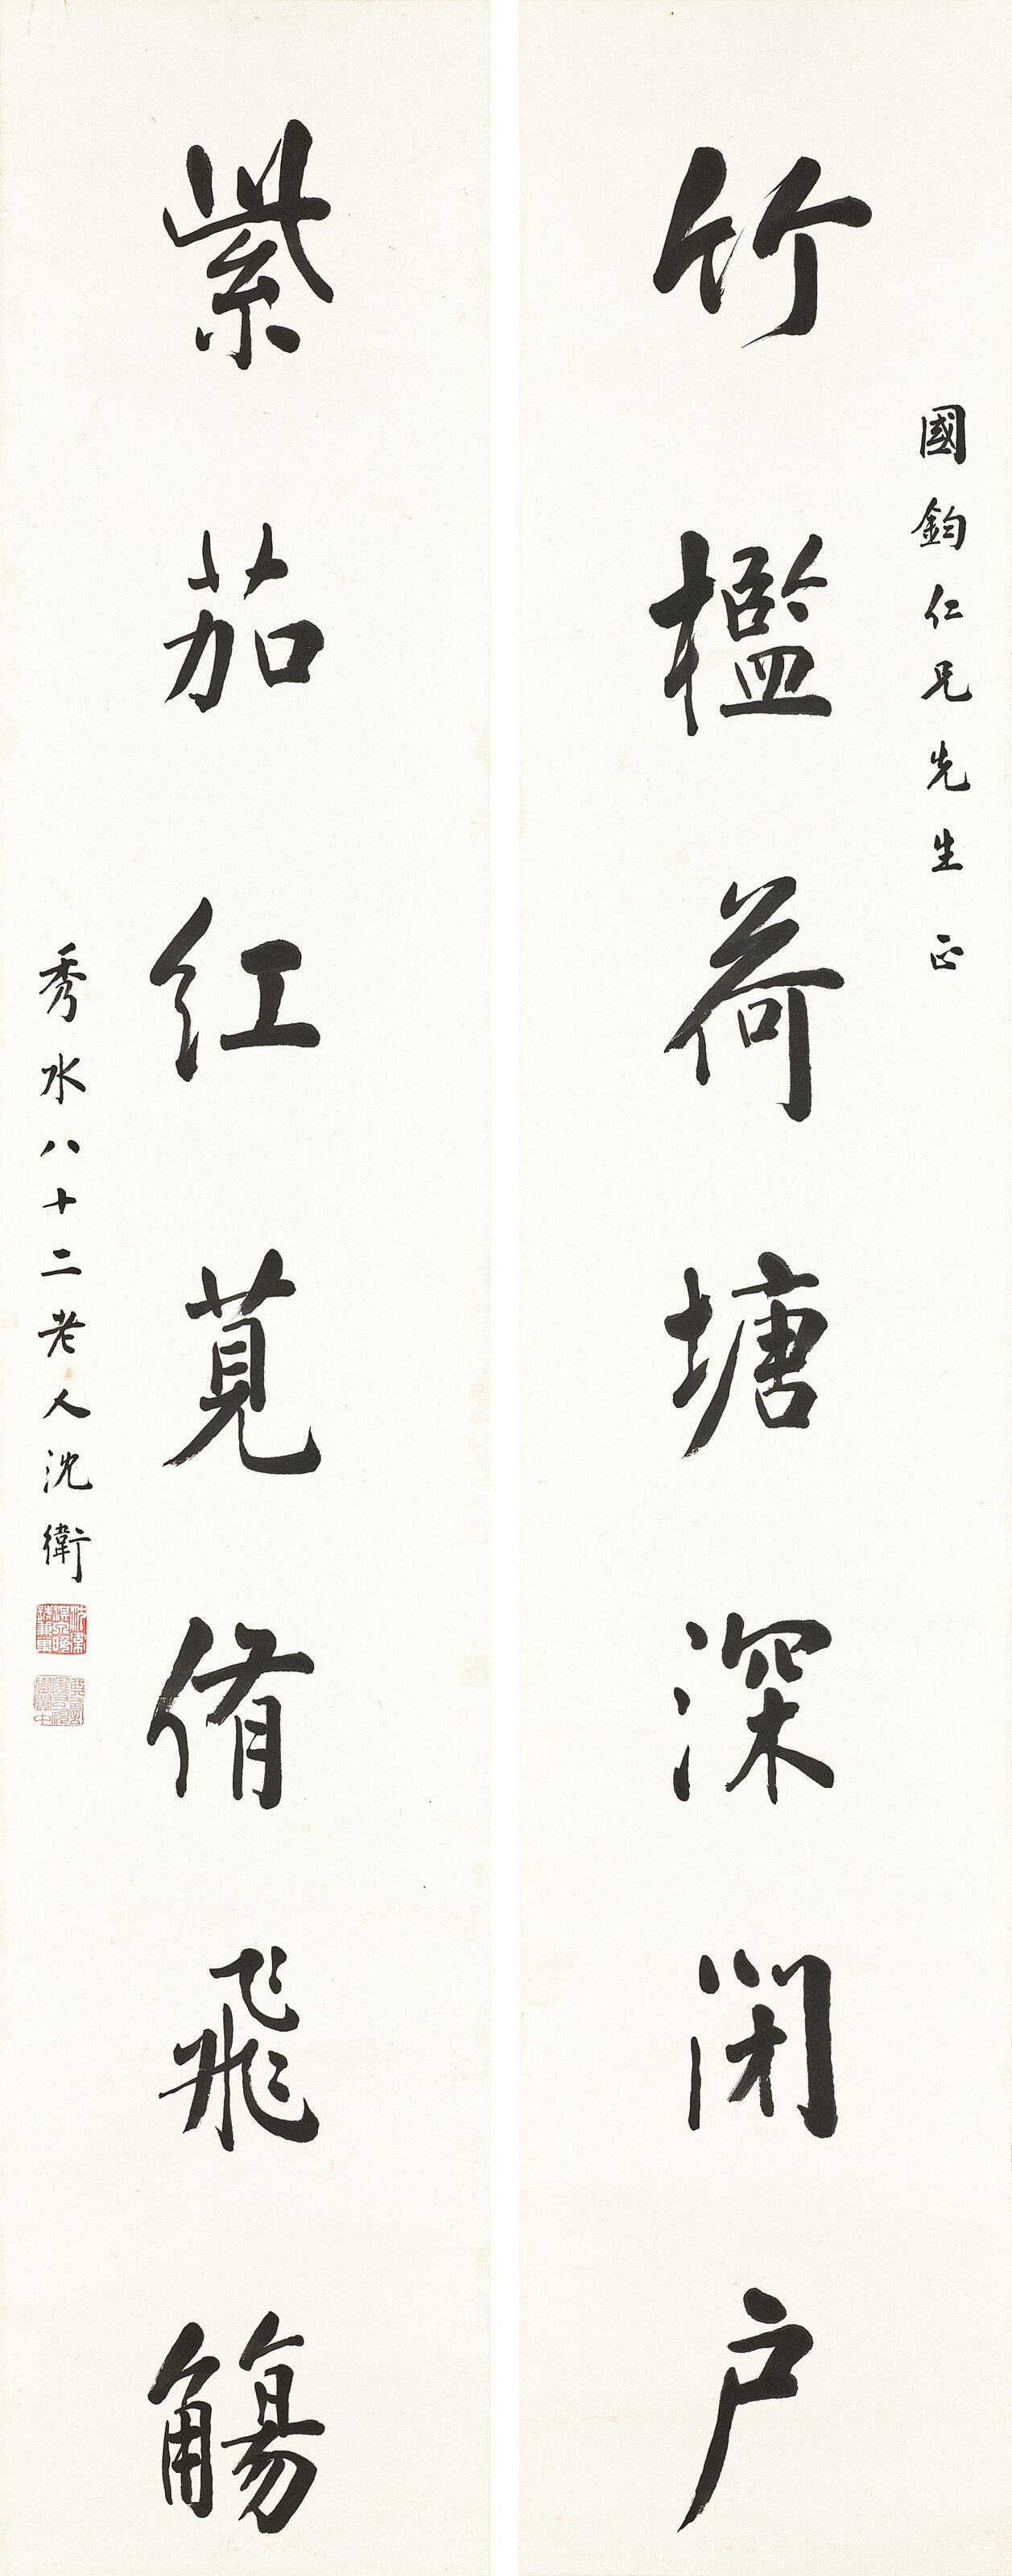 國鈞仁兄先生正
竹檻荷塘深閉戶
紫茄紅莧侑飛觴
秀水八十二老人沈衛